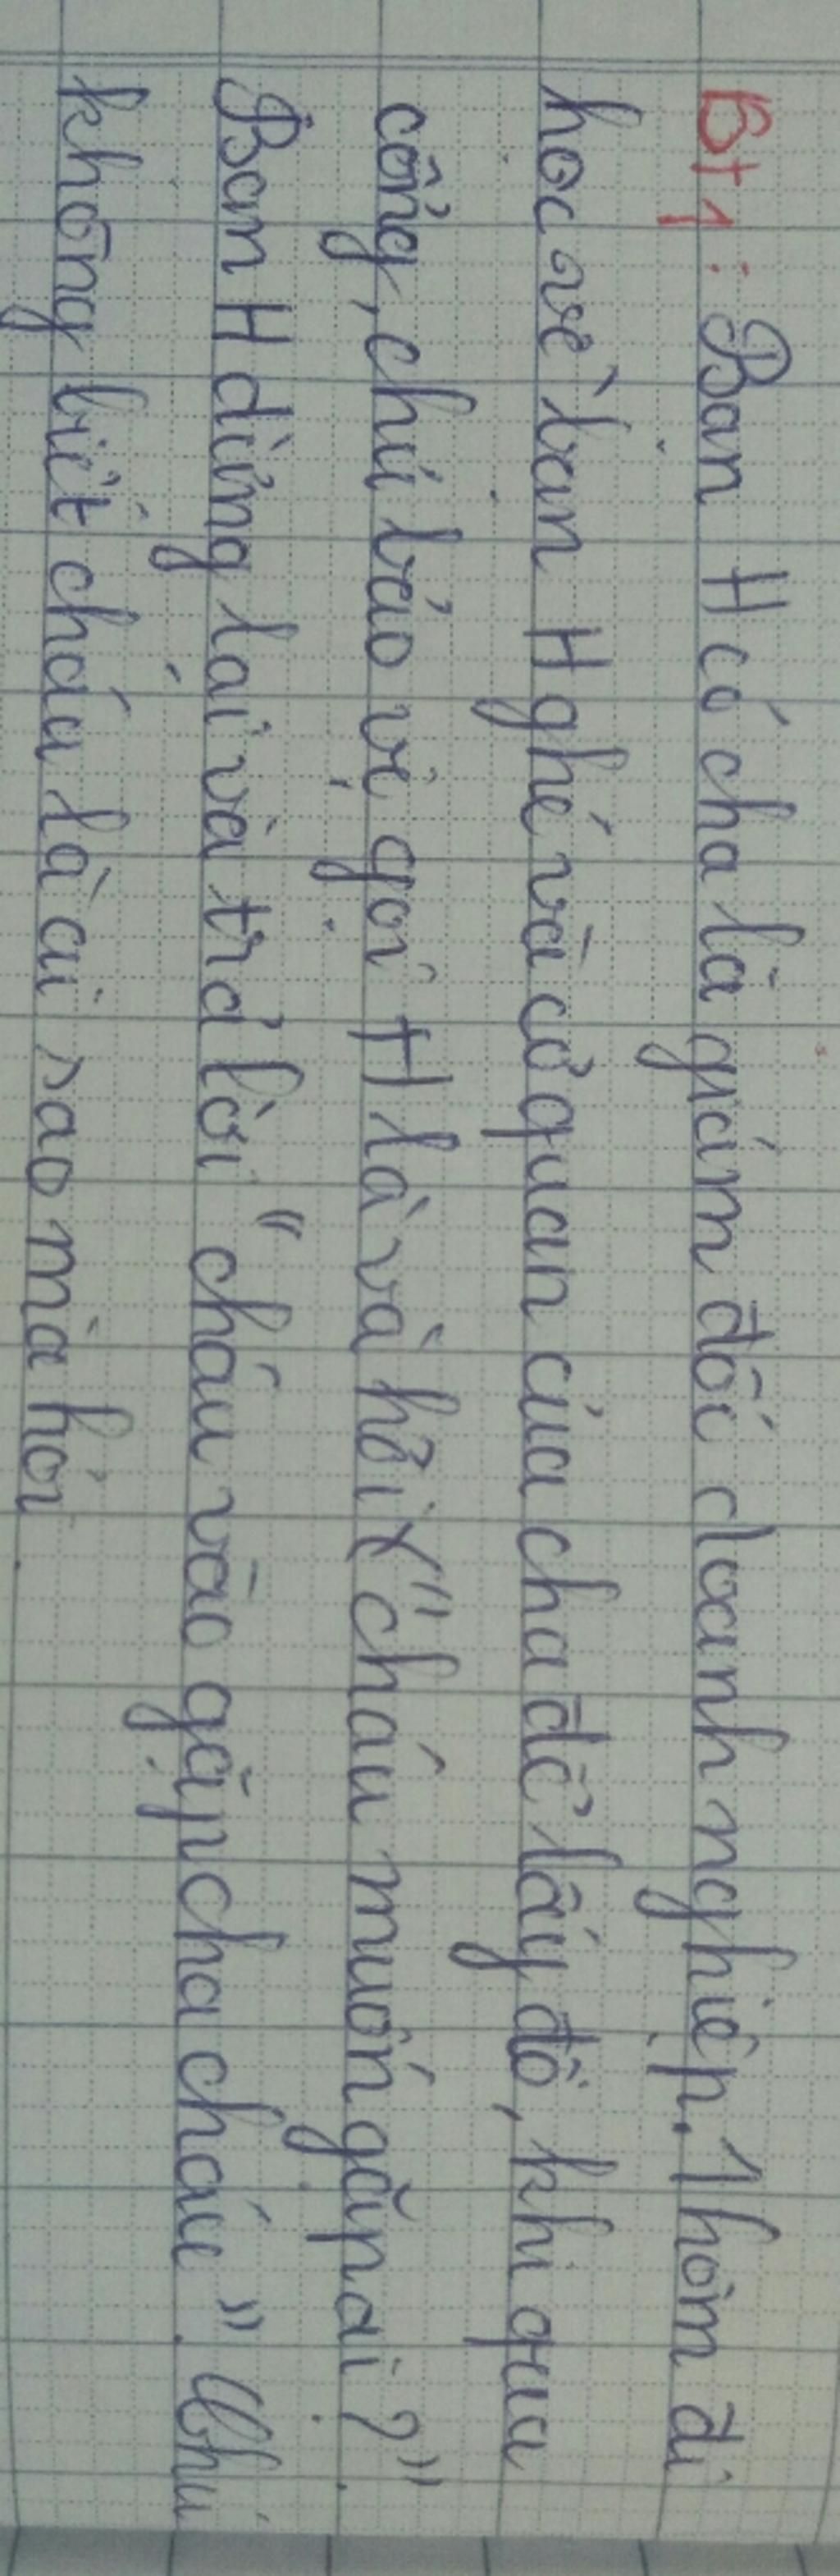 Bt1: Bạn H có cha là giám đốc doanh nghiệp. 1 hôm đi
học về bạn H ghé và cơ quan của cha để lấy đồ, khi qua
cổng, chú bảo vệ gọi H là và hỏi "cháu muốn gặp ai?".
Bạn H dừng lại và trả lời "cháu vào gặp cha cháu". Chú
không biết cháu là ai sao mà hỏi